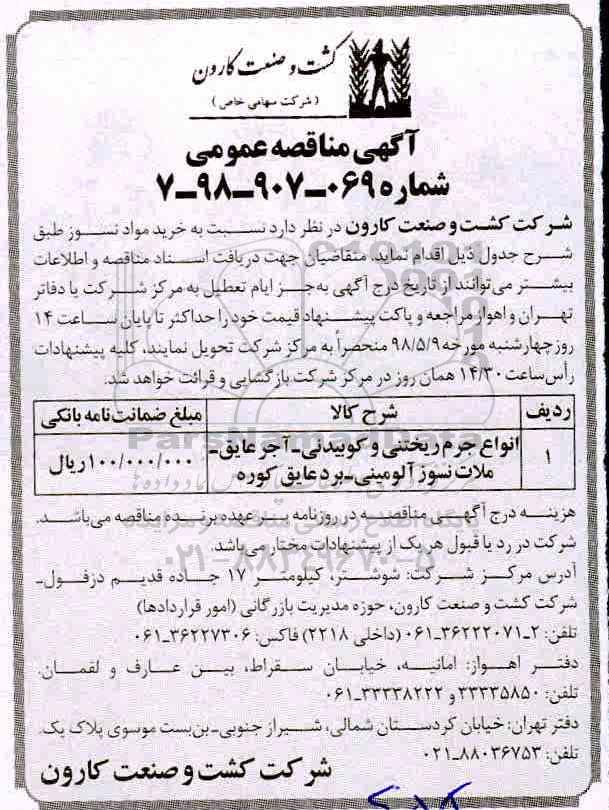 کشت و صنعت کارون
( شرکت سهامی خاص )
آگهی مناقصه عمومی
شماره ۰۶۹-۹۰۷-۹۸-۷
شرکت کشت و صنعت کارون در نظر دارد نسبت به خرید مواد نسوز طبق
شرح جدول ذیل اقدام نماید. متقاضیان جهت دریافت اسناد مناقصه و اطلاعات
بیشتر می‌توانند از تاریخ درج آگهی به‌جز ایام تعطیل به مرکز شرکت یا دفاتر
تهران و اهواز مراجعه و پاکت پیشنهاد قیمت خود را حداکثر تا پایان ساعت ۱۴
روز چهارشنبه مورخه ۹۸/۵/۹ منحصراً به مرکز شرکت تحویل نمایند، کلیه پیشنهادات
رأس ساعت ۱۴/۳۰ همان روز در مرکز شرکت بازگشایی و قرائت خواهد شد.
ردیف شرح کالا مبلغ ضمانت‌نامه بانکی
۱ انواع جرم ریختنی و کوبیدنی-آجر عایق- ۱۰۰/۰۰۰/۰۰۰ ریال
ملات نسوز آلومینی-برد عایق کوره
ParsNamadData
هزینه درج آگهی مناقصه در روزنامه به عهده برنده مناقصه می‌باشد.
شرکت در رد یا قبول هر یک از پیشنهادات مختار می‌باشد.
۰۲۱-۸۸۳۴۹۶۷۰-۵
آدرس مرکز شرکت: شوشتر، کیلومتر ۱۷ جاده قدیم دزفول-
شرکت کشت و صنعت کارون، حوزه مدیریت بازرگانی (امور قراردادها)
تلفن: ۲-۳۶۲۲۲۰۷۱-۰۶۱ (داخلی ۲۲۱۸) فاکس: ۳۶۲۲۷۳۰۶-۰۶۱
دفتر اهواز: امانیه، خیابان سقراط، بین عارف و لقمان.
تلفن: ۳۳۳۳۵۸۵۰ و ۳۳۳۳۸۲۲۲-۰۶۱
دفتر تهران: خیابان کردستان شمالی، شیراز جنوبی-بن‌بست موسوی پلاک یک.
تلفن: ۸۸۰۳۶۷۵۳-۰۲۱
شرکت کشت و صنعت کارون